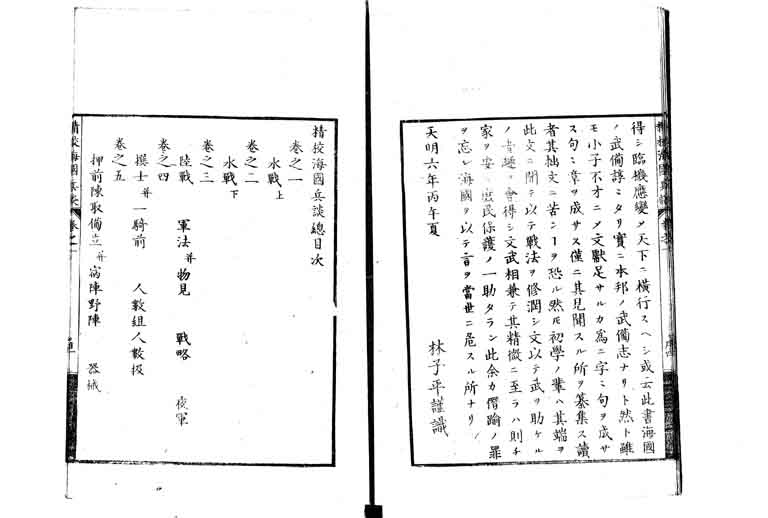 得シ臨機應變シテ天下ニ橫行スヘシ或云此書海國
ノ武備諄ミタリ實ニ本邦ノ武備志ナリト然ト雖
モ小子不才ニメ文獻足サルカ為ニ字ミ句ヲ成サ
ス句ミ章ヲ成サス僅ニ其見聞スル所ヲ纂集ス讀
者其拙文ニ苦ンヿヲ恐ル然モ初學ノ輩ハ其端ヲ
此文ニ開テ以テ戰法ヲ修潤シ文以テ武ヲ助ケル
ノ會得シ文武相兼テ其精微ニ至ラハ則チ
家ヲ安シ庶民保護ノ一助タラン此余カ僭踰ノ罪
ヲ忘レ海國ヲ以テ言ヲ當世ニ危スル所ナリ
天明六年丙午夏
林子平謹識
精校海國兵談總目次
卷之一
水戰上
卷之二
水戰下
卷之三
陸戰 軍法并物見 戰略 夜軍
卷之四
撰士并一騎前 人數組人數扱
卷之五
押前陳取備立并宿陣野陣 器械
精校海國兵談 卷之一